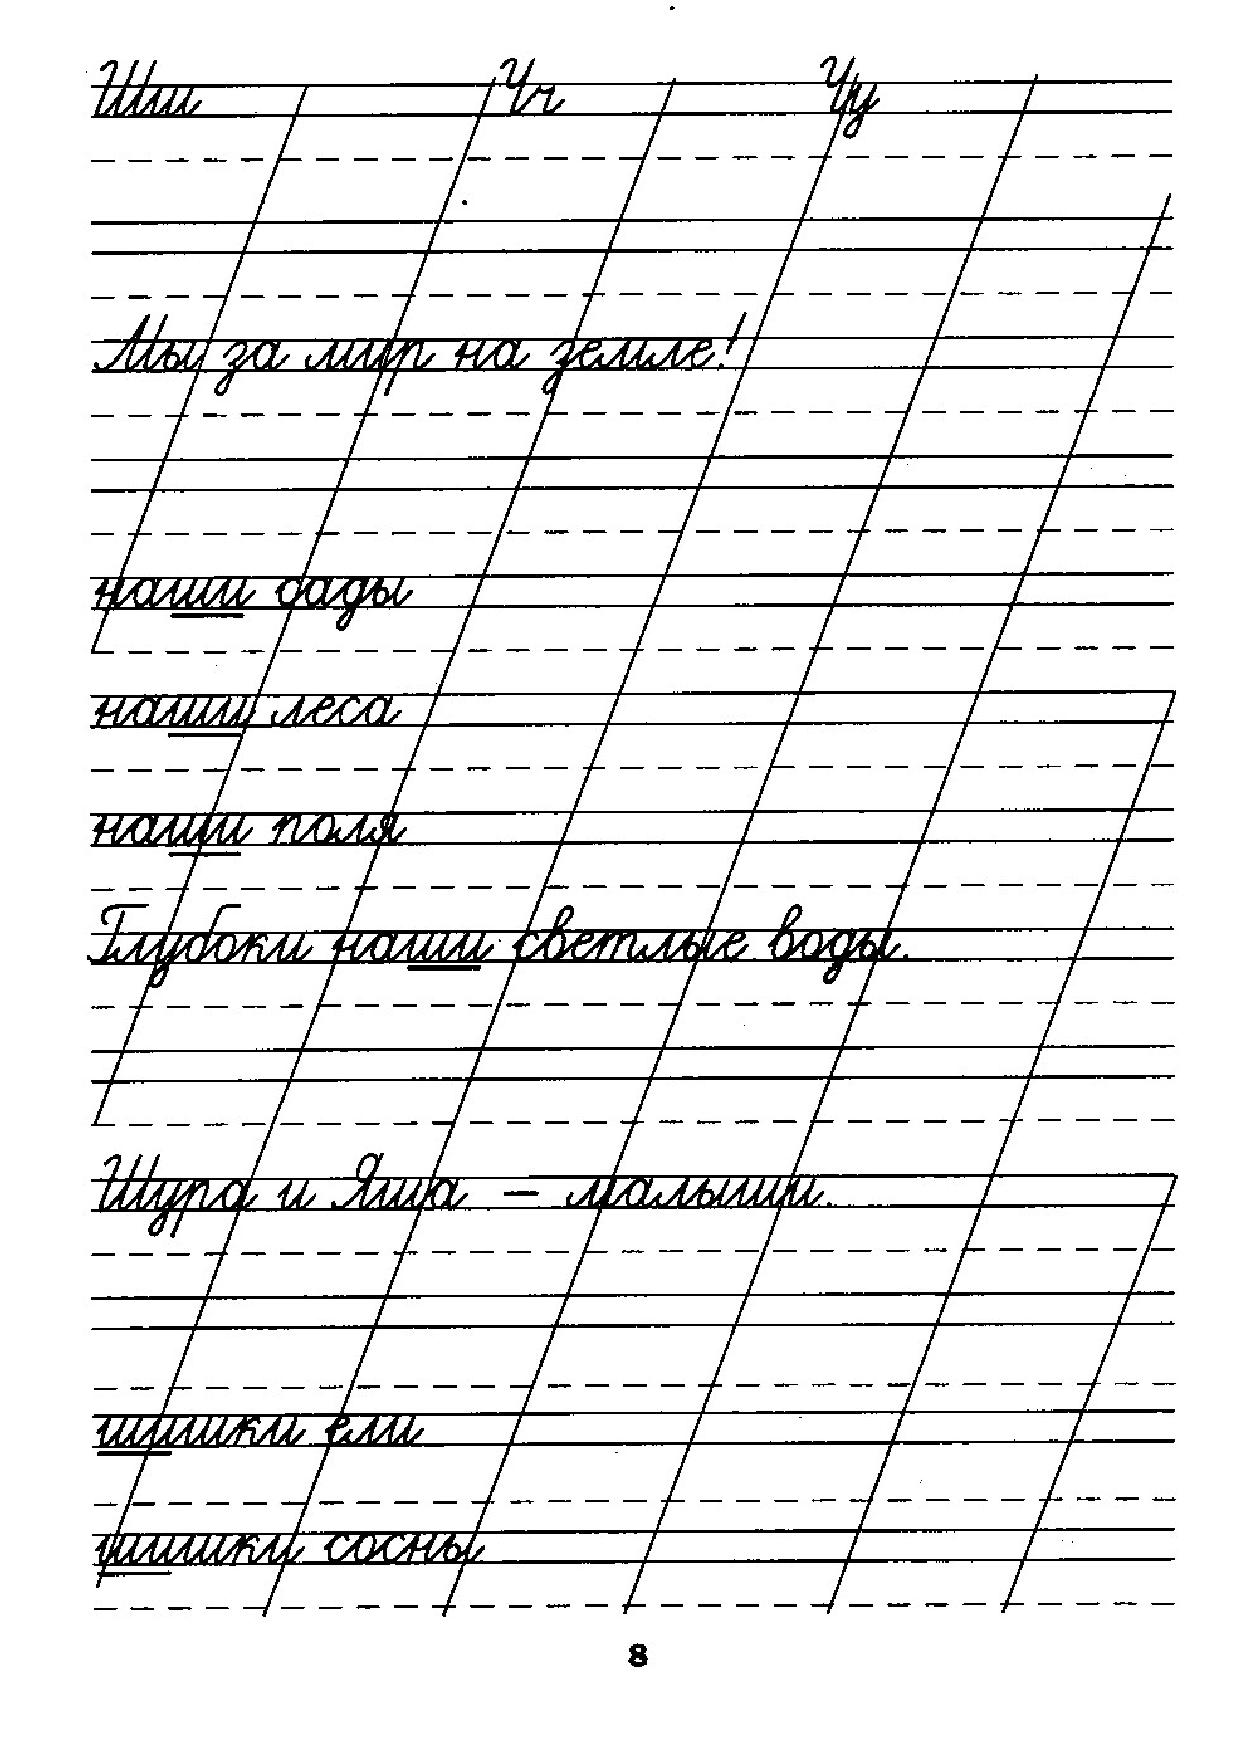 Шш Чч Чу
Мы за мир на земле!
наши сады
наши леса
наши поля
Глубоки наши светлые воды.
Шура и Яша – малыши.
шишки ели
шишки сосны
8